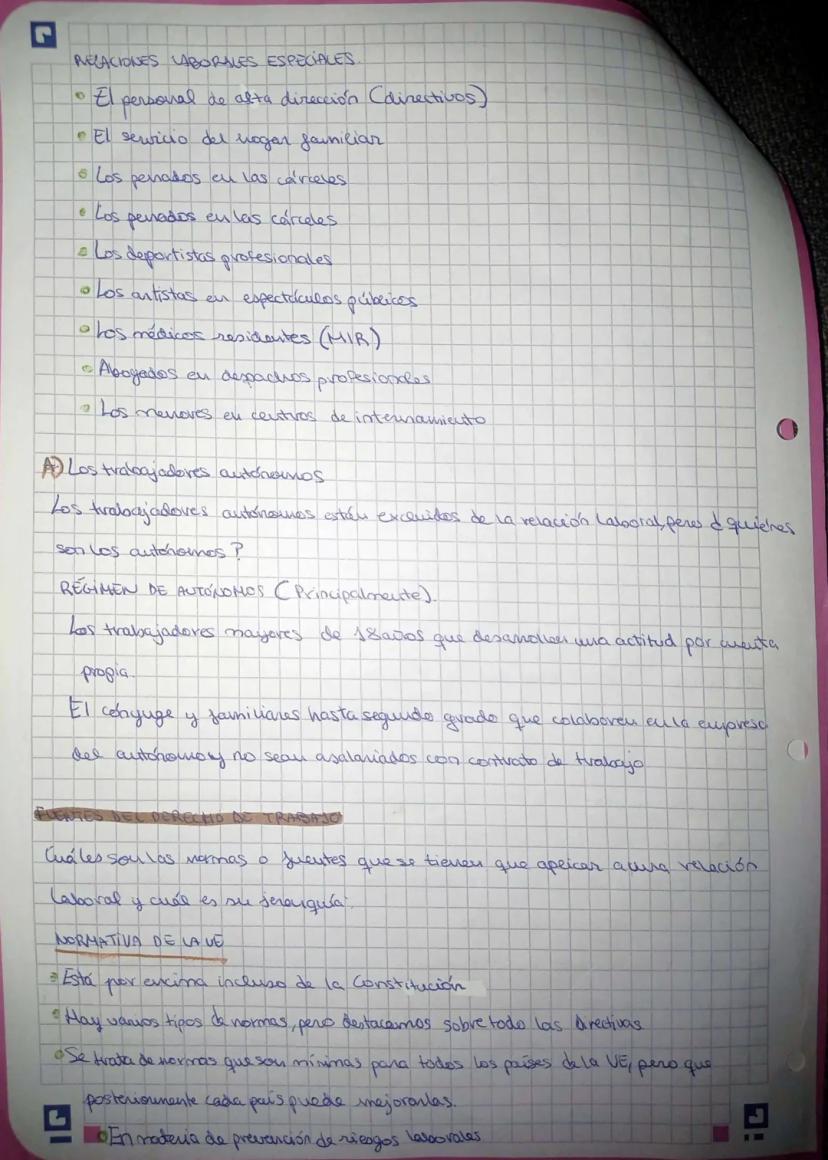 RELACIONES LABORALES ESPECIALES.
• El personal de alta dirección (directivos)
• El servicio del hogar familiar
• Los penados en las cárceles
• Los penados en las cárceles
• Los deportistas profesionales
• Los artistas en espectáculos públicos
• Los médicos residentes (MIR)
• Abogados en despachos profesionales
• Los menores en centros de internamiento
A) Los trabajadores autónomos
Los trabajadores autónomos están excluidos de la relación laboral, pero ¿quiénes
son los autónomos?
RÉGIMEN DE AUTÓNOMOS (Principalmente).
Los trabajadores mayores de 18 años que desarrollen una actitud por cuenta
propia.
El cónyuge y familiares hasta segundo grado que colaboren en la empresa
del autónomo y no sean asalariados con contrato de trabajo
FUENTES DEL DERECHO DE TRABAJO
Cuáles son las normas o fuentes que se tienen que aplicar a una relación
laboral y cuál es su jerarquía.
NORMATIVA DE LA UE
• Está por encima incluso de la Constitución
• Hay varios tipos de normas, pero destacamos sobre todo las Directivas
• Se trata de normas que son mínimas para todos los países de la UE, pero que
posteriormente cada país puede mejorarlas.
• En materia de prevención de riesgos laborales